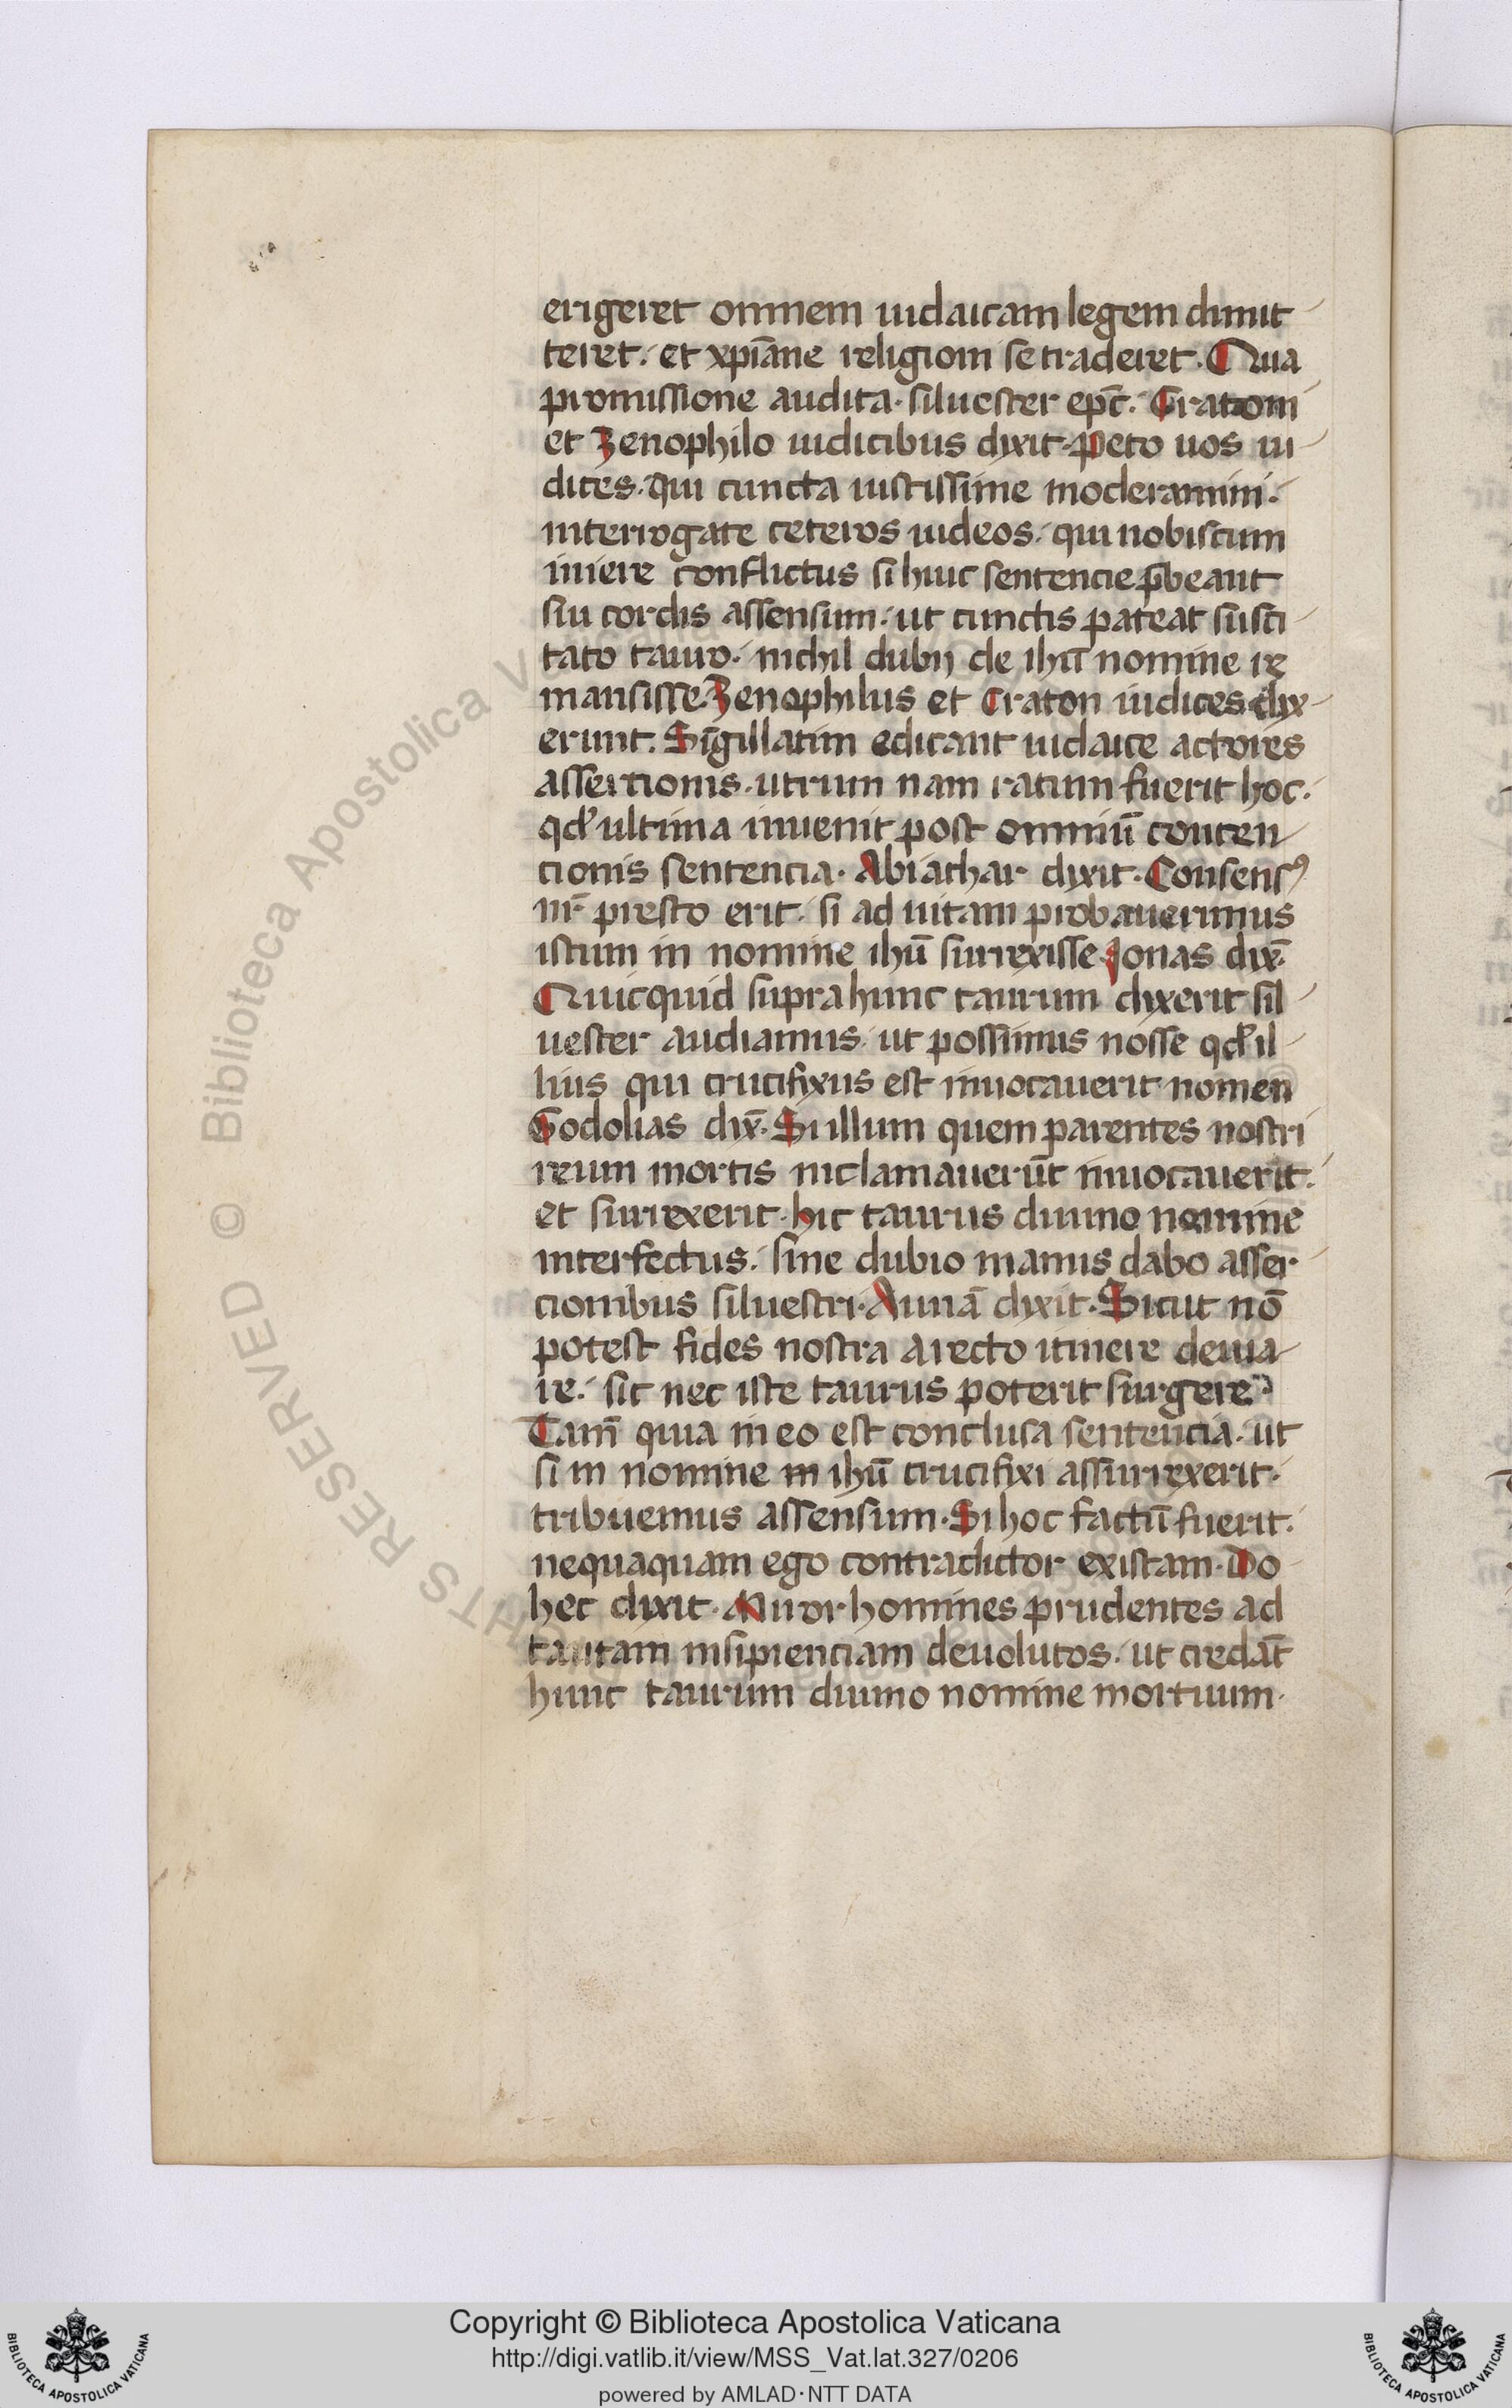 erigeret omnem iudaicam legem dimit
teret. et xp̄iane religioni se traderet. Qua
promissione audita. siluester ep̄c. Cratoni
et Zenophilo iudicibus dixit. Peto uos iu
dices. qui cuncta iustissime moderamini.
interrogate ceteros iudeos. qui nobiscum
iniere conflictus si huic sentencie p̄beant
sui cordis assensum. ut cunctis pateat susci
tato tauro. nichil dubij de ihū nomine re
mansisse. Zenophilus et Craton iudices dix
erunt. Singillatim edicant iudaice actores
assertionis. utrum nam ratum fuerit hoc.
qd' ultima inuenit post omniū conten
cionis sentencia. Abiathar dixit. Consensꝰ
nr̄ presto erit. si ad uitam probauerimus
istum in nomine ihū surrexisse. Jonas dix̄.
Quicquid supra hunc taurum dixerit sil
uester audiamus. ut possimus nosse qd' il
lius qui crucifixus est inuocauerit nomen
Godolias dix̄. Si illum quem parentes nostri
reum mortis inclamauerūt inuocauerit.
et surrexerit. hic taurus diuino nomine
interfectus. sine dubio manus dabo asser
cionibus siluestri. Aunā dixit. Sicut nō
potest fides nostra a recto itinere deuia
re. sic nec iste taurus poterit surgere
Tam̄ quia in eo est conclusa sentencia. ut
si in nomine in ihū crucifixi assurrexerit.
tribuemus assensum. Si hoc factū fuerit.
nequaquam ego contradictor existam. Do
hec dixit. Miror homines prudentes ad
tantam insipienciam deuolutos. ut credāt
hunc taurum diuino nomine mortuum.
© Biblioteca Apostolica Vaticana
Copyright © Biblioteca Apostolica Vaticana
http://digi.vatlib.it/view/MSS_Vat.lat.327/0206
powered by AMLAD·NTT DATA
BIBLIOTECA APOSTOLICA VATICANA
BIBLIOTECA APOSTOLICA VATICANA